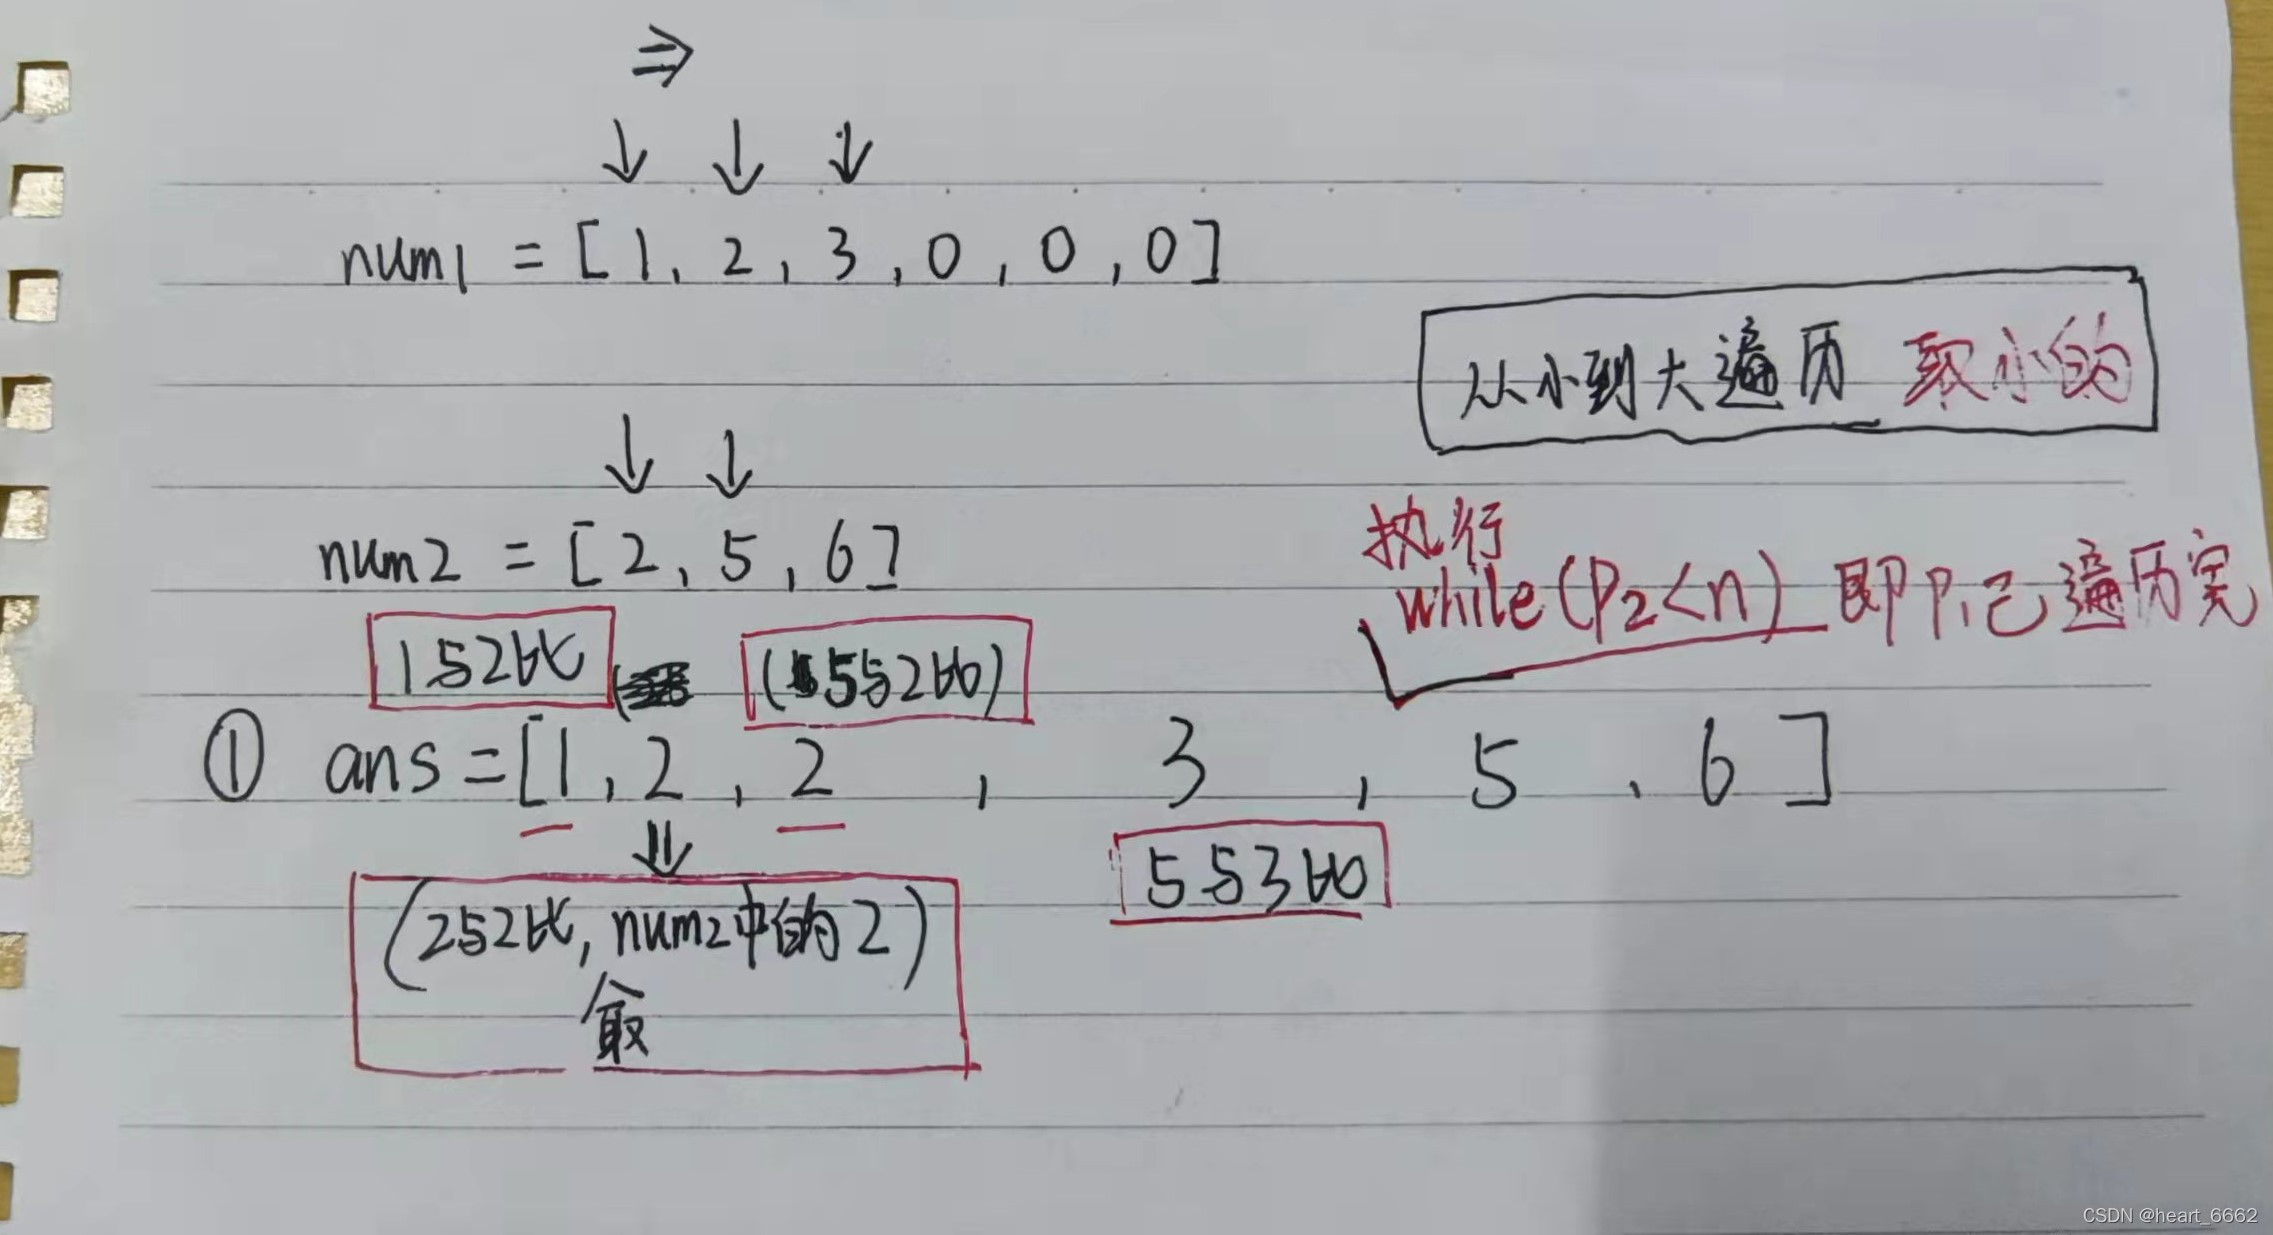 ⇒
↓ ↓ ↓
num1 = [1, 2, 3, 0, 0, 0]
从小到大遍历 取小的
↓ ↓
num2 = [2, 5, 6]
执行
while(P2<n) 即P1已遍历完
1与2比 (5与2比)
① ans=[1, 2, 2, 3, 5, 6]
⇓
5与3比
(2与2比, num2中的2)
CSDN @heart_6662